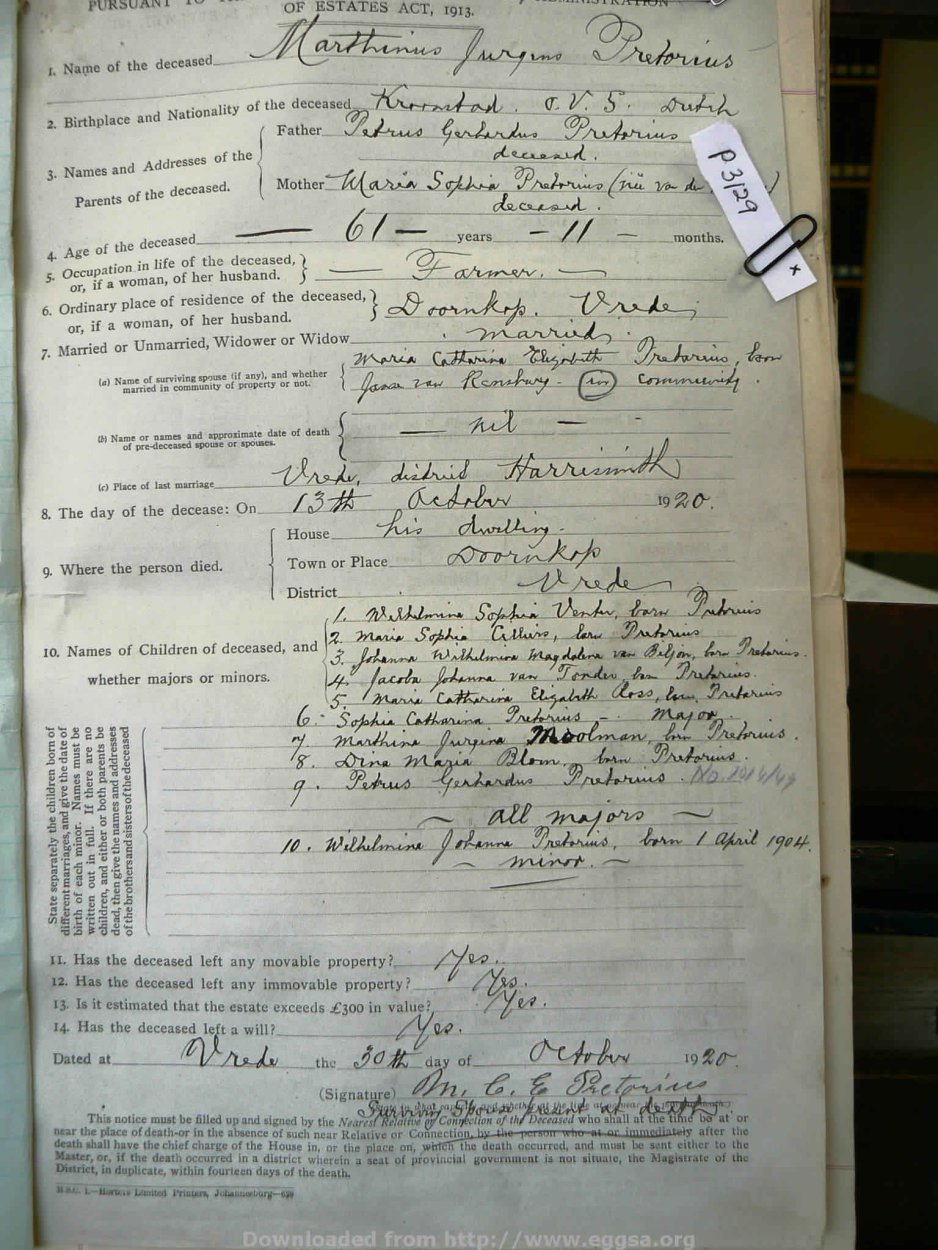 PURSUANT TO ADMINISTRATION
OF ESTATES ACT, 1913.
1. Name of the deceased Marthinus Jurgens Pretorius
2. Birthplace and Nationality of the deceased Kroonstad. O.V.S. Dutch
3. Names and Addresses of the Parents of the deceased.
Father Petrus Gerhardus Pretorius
deceased.
Mother Maria Sophia Pretorius (née van der
deceased.
P 3/29
x
4. Age of the deceased — 61 — years — 11 — months.
5. Occupation in life of the deceased, or, if a woman, of her husband. } — Farmer. —
6. Ordinary place of residence of the deceased, or, if a woman, of her husband. } Doornkop. Vrede
7. Married or Unmarried, Widower or Widow married.
(a) Name of surviving spouse (if any), and whether married in community of property or not.
Maria Catharina Elizabeth Pretorius, born
Janse van Rensburg - (in) community.
(b) Name or names and approximate date of death of pre-deceased spouse or spouses.
— nil —
(c) Place of last marriage Vrede, district Harrismith
8. The day of the decease: On 13th October 1920.
9. Where the person died.
House his dwelling.
Town or Place Doornkop
District Vrede
10. Names of Children of deceased, and whether majors or minors.
1. Wilhelmina Sophia Venter, born Pretorius
2. Maria Sophia Cilliers, born Pretorius
3. Johanna Wilhelmina Magdalena van Biljon, born Pretorius.
4. Jacoba Johanna van Tonder, born Pretorius.
5. Maria Catharina Elizabeth Ross, born Pretorius
6. Sophia Catharina Pretorius - Major.
7. Marthina Jurgina Moolman, born Pretorius.
8. Dina Maria Blom, born Pretorius.
9. Petrus Gerhardus Pretorius. No.
~ all majors ~
10. Wilhelmina Johanna Pretorius, born 1 April 1904.
~ minor. ~
State separately the children born of
different marriages, and give the date of
birth of each minor. Names must be
written out in full. If there are no
children, and either or both parents be
dead, then give the names and addresses
of the brothers and sisters of the deceased
11. Has the deceased left any movable property? Yes.
12. Has the deceased left any immovable property? Yes.
13. Is it estimated that the estate exceeds £300 in value? Yes.
14. Has the deceased left a will? Yes.
Dated at Vrede the 30th day of October 1920
(Signature) M. C. E Pretorius
Surviving Spouse present at death.
This notice must be filled up and signed by the Nearest Relative or Connection of the Deceased who shall at the time be at or
near the place of death-or in the absence of such near Relative or Connection, by the person who at or immediately after the
death shall have the chief charge of the House in, or the place on, which the death occurred, and must be sent either to the
Master, or, if the death occurred in a district wherein a seat of provincial government is not situate, the Magistrate of the
District, in duplicate, within fourteen days of the death.
Hortors Limited Printers, Johannesburg
Downloaded from http://www.eggsa.org